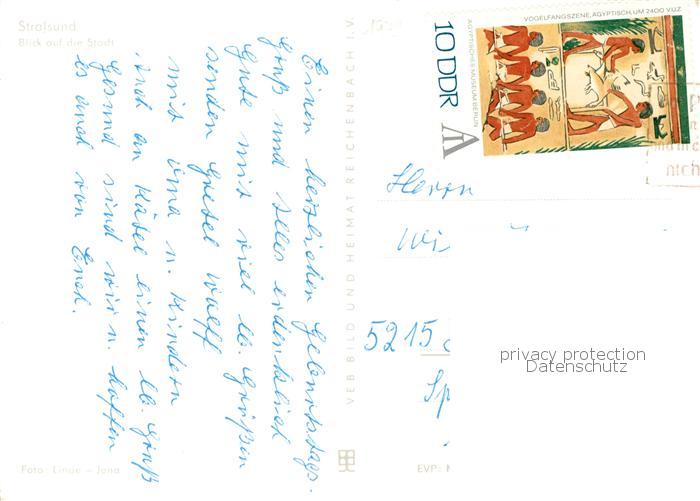 Stralsund
Blick auf die Stadt
Einen herzlichen Geburtstags-
gruß und alles erdenklich
Gute mit viel lb. Grüßen
senden Gretel Wulff
mit Irma u. Kindern
Auch an Kätel einen lb. Gruß
Gesund sind wir u. hoffen
es auch von Euch.
Foto: Linde – Jena
VEB BILD UND HEIMAT REICHENBACH I. V.
EVP:
VOGELFANGSZENE, ÄGYPTISCH, UM 2400 V.U.Z.
ÄGYPTISCHES MUSEUM BERLIN
10 DDR
nich
Herrn
5215
privacy protection
Datenschutz